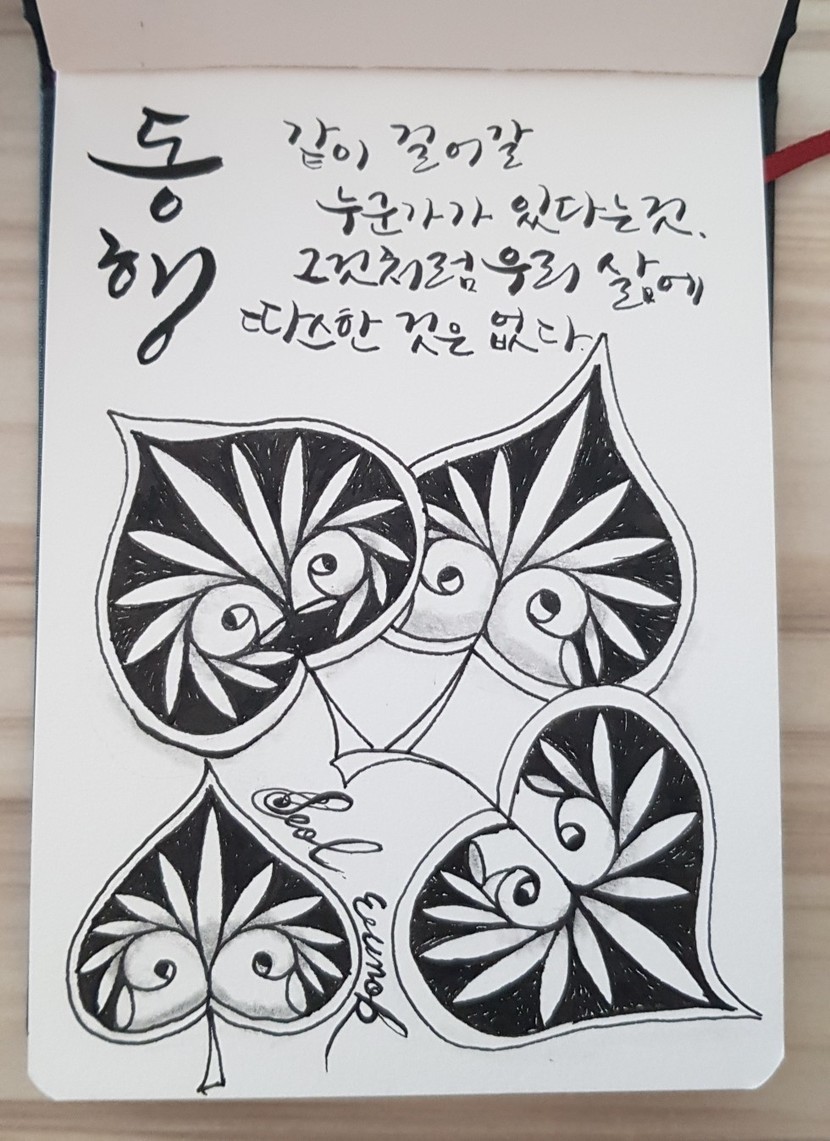 동행
같이 걸어갈
누군가가 있다는것.
그것처럼 우리 삶에
따스한 것은 없다.
Seol